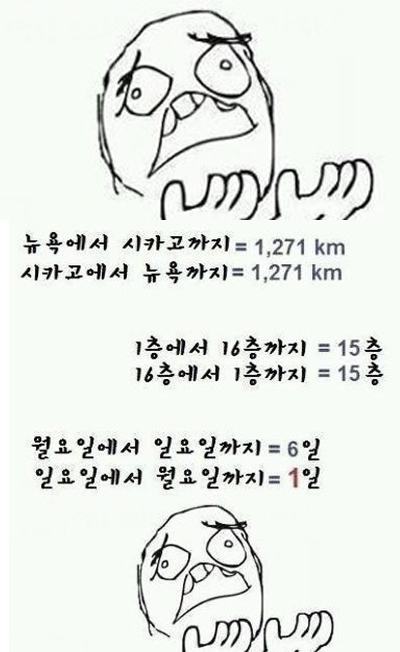 뉴욕에서 시카고까지 = 1,271 km
시카고에서 뉴욕까지 = 1,271 km
1층에서 16층까지 = 15 층
16층에서 1층까지 = 15 층
월요일에서 일요일까지 = 6일
일요일에서 월요일까지 = 1일